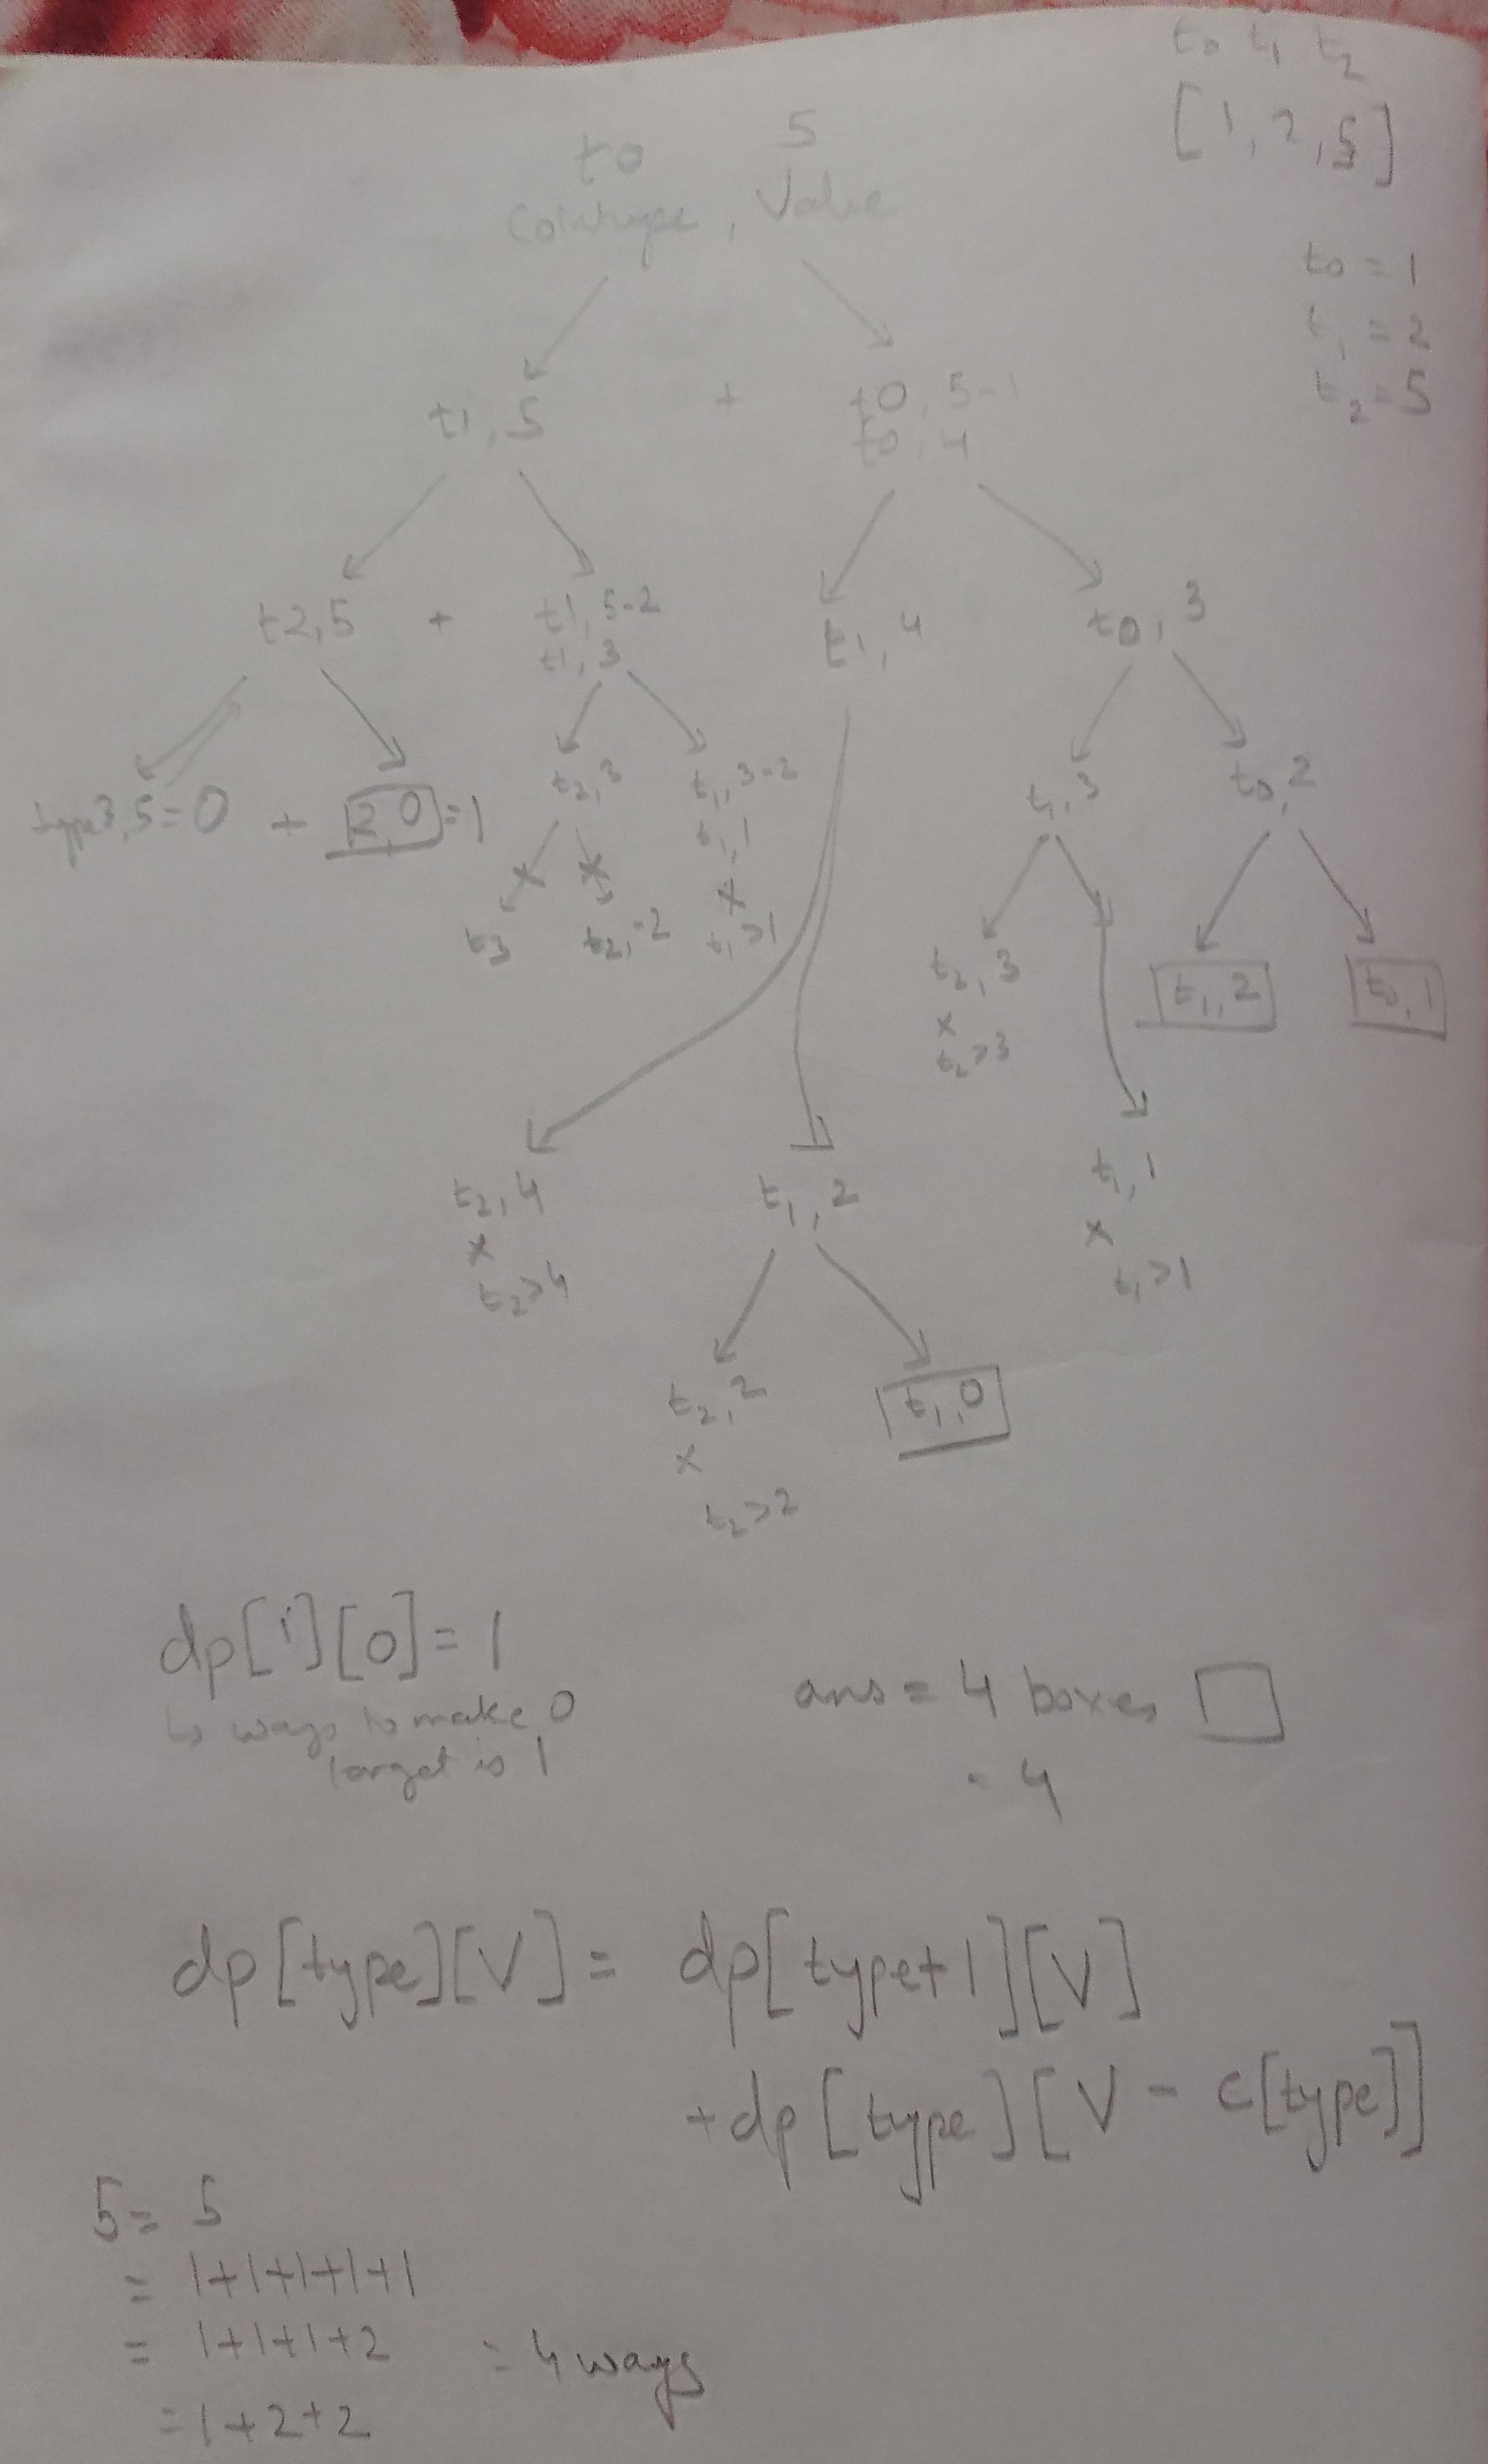 t0 t1 t2
[1, 2, 5]
t0 5
Cointype, Value
t0 = 1
t1 = 2
t2 = 5
t1, 5 + t0, 5-1
t0, 4
t2, 5 + t1, 5-2
t1, 3
t1, 4
t0, 3
type3, 5 = 0 + 2, 0 = 1
t2, 3
t1, 3-2
t1, 1
x
t1 > 1
t1, 3
t0, 2
x x
t3 t2, -2
t2, 3
x
t2 > 3
t1, 2
t0, 1
t2, 4
x
t2 > 4
t1, 2
t1, 1
x
t1 > 1
t2, 2
x
t2 > 2
t1, 0
dp[i][0] = 1
↳ ways to make 0
target is 1
ans = 4 boxes □
= 4
dp[type][V] = dp[type+1][V]
+ dp[type][V - c[type]]
5 = 5
= 1+1+1+1+1
= 1+1+1+2 = 4 ways
= 1+2+2